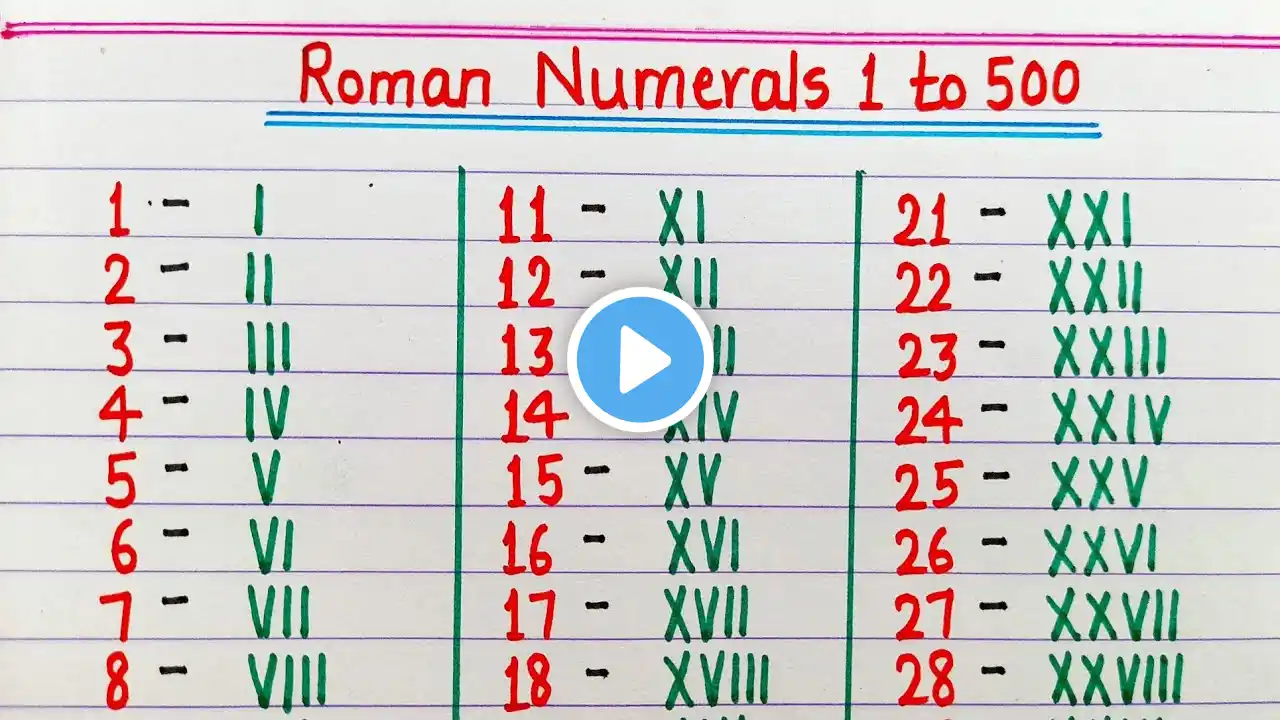 Roman Numerals 1 to 500
1 - I
2 - II
3 - III
4 - IV
5 - V
6 - VI
7 - VII
8 - VIII
11 - XI
12 - XII
13
14 XIV
15 - XV
16 - XVI
17 - XVII
18 - XVIII
21 - XXI
22 - XXII
23 - XXIII
24 - XXIV
25 - XXV
26 - XXVI
27 - XXVII
28 - XXVIII